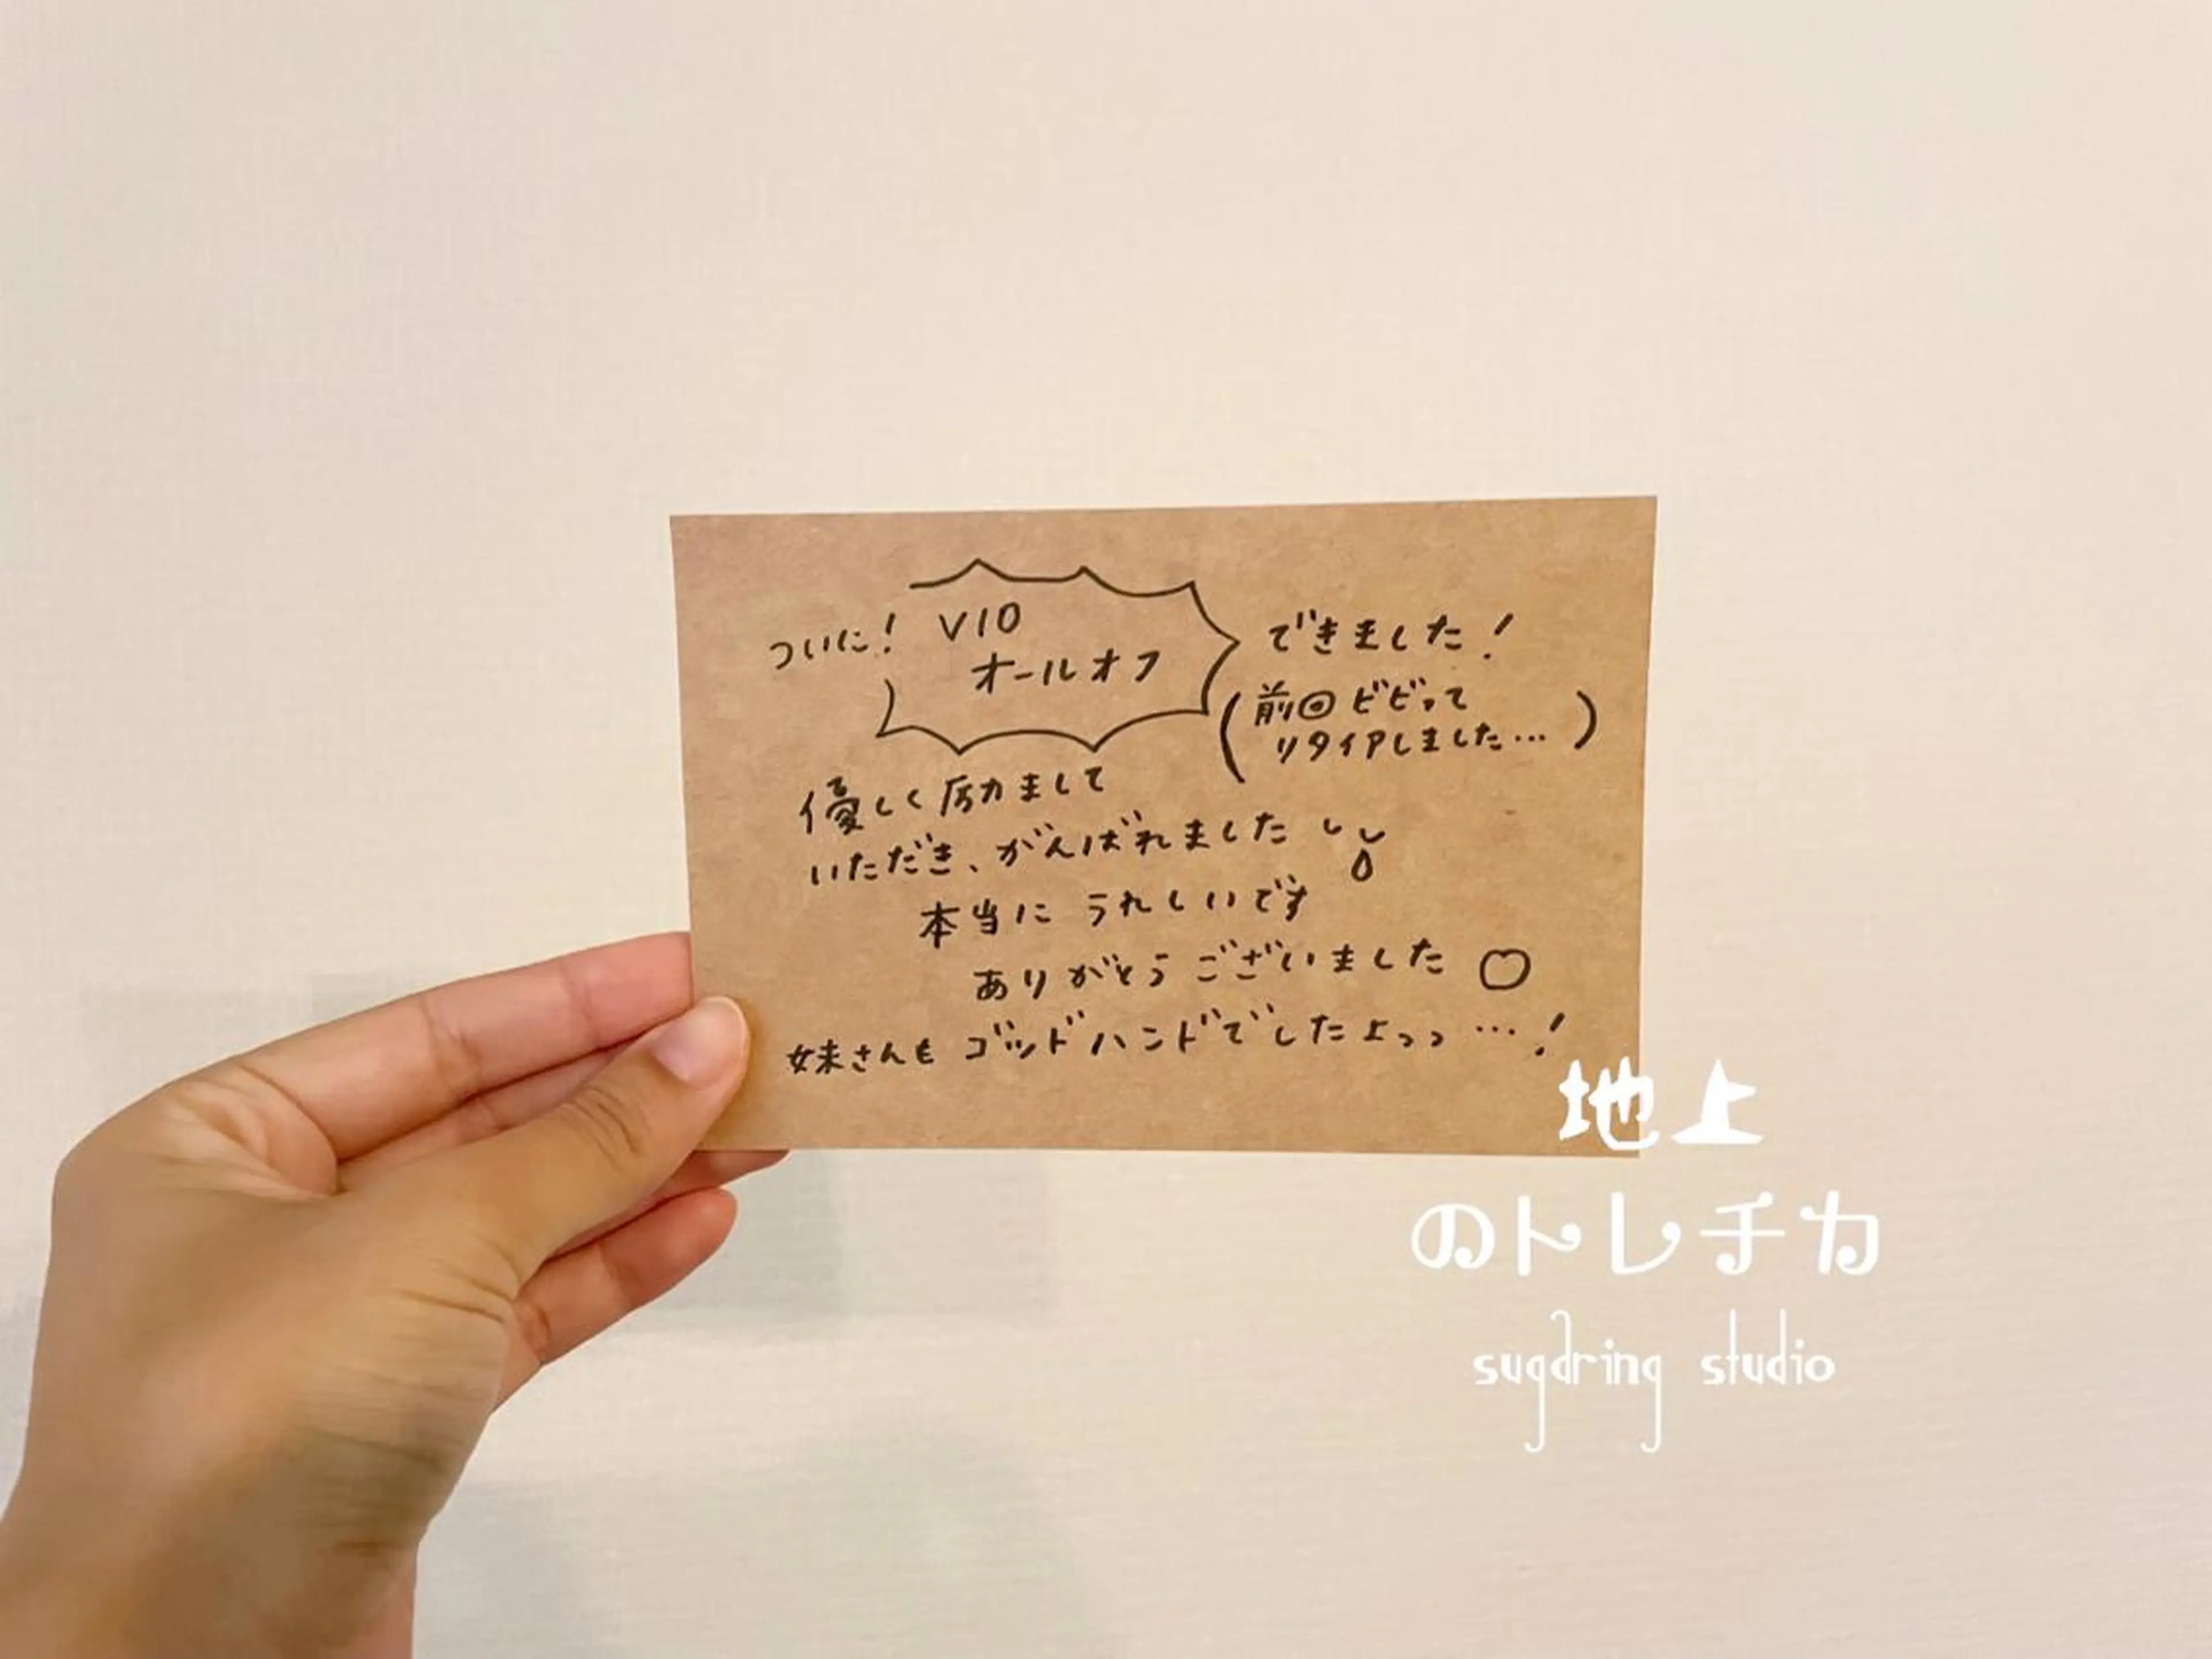 ついに! VIO
オールオフ
できました!
(前回ビビって
リタイアしました…)
優しく励まして
いただき、がんばれました
本当に うれしいです
ありがとうございました
妹さんも ゴッドハンドでしたよっっ…!
地上
のトレチカ
sugaring studio